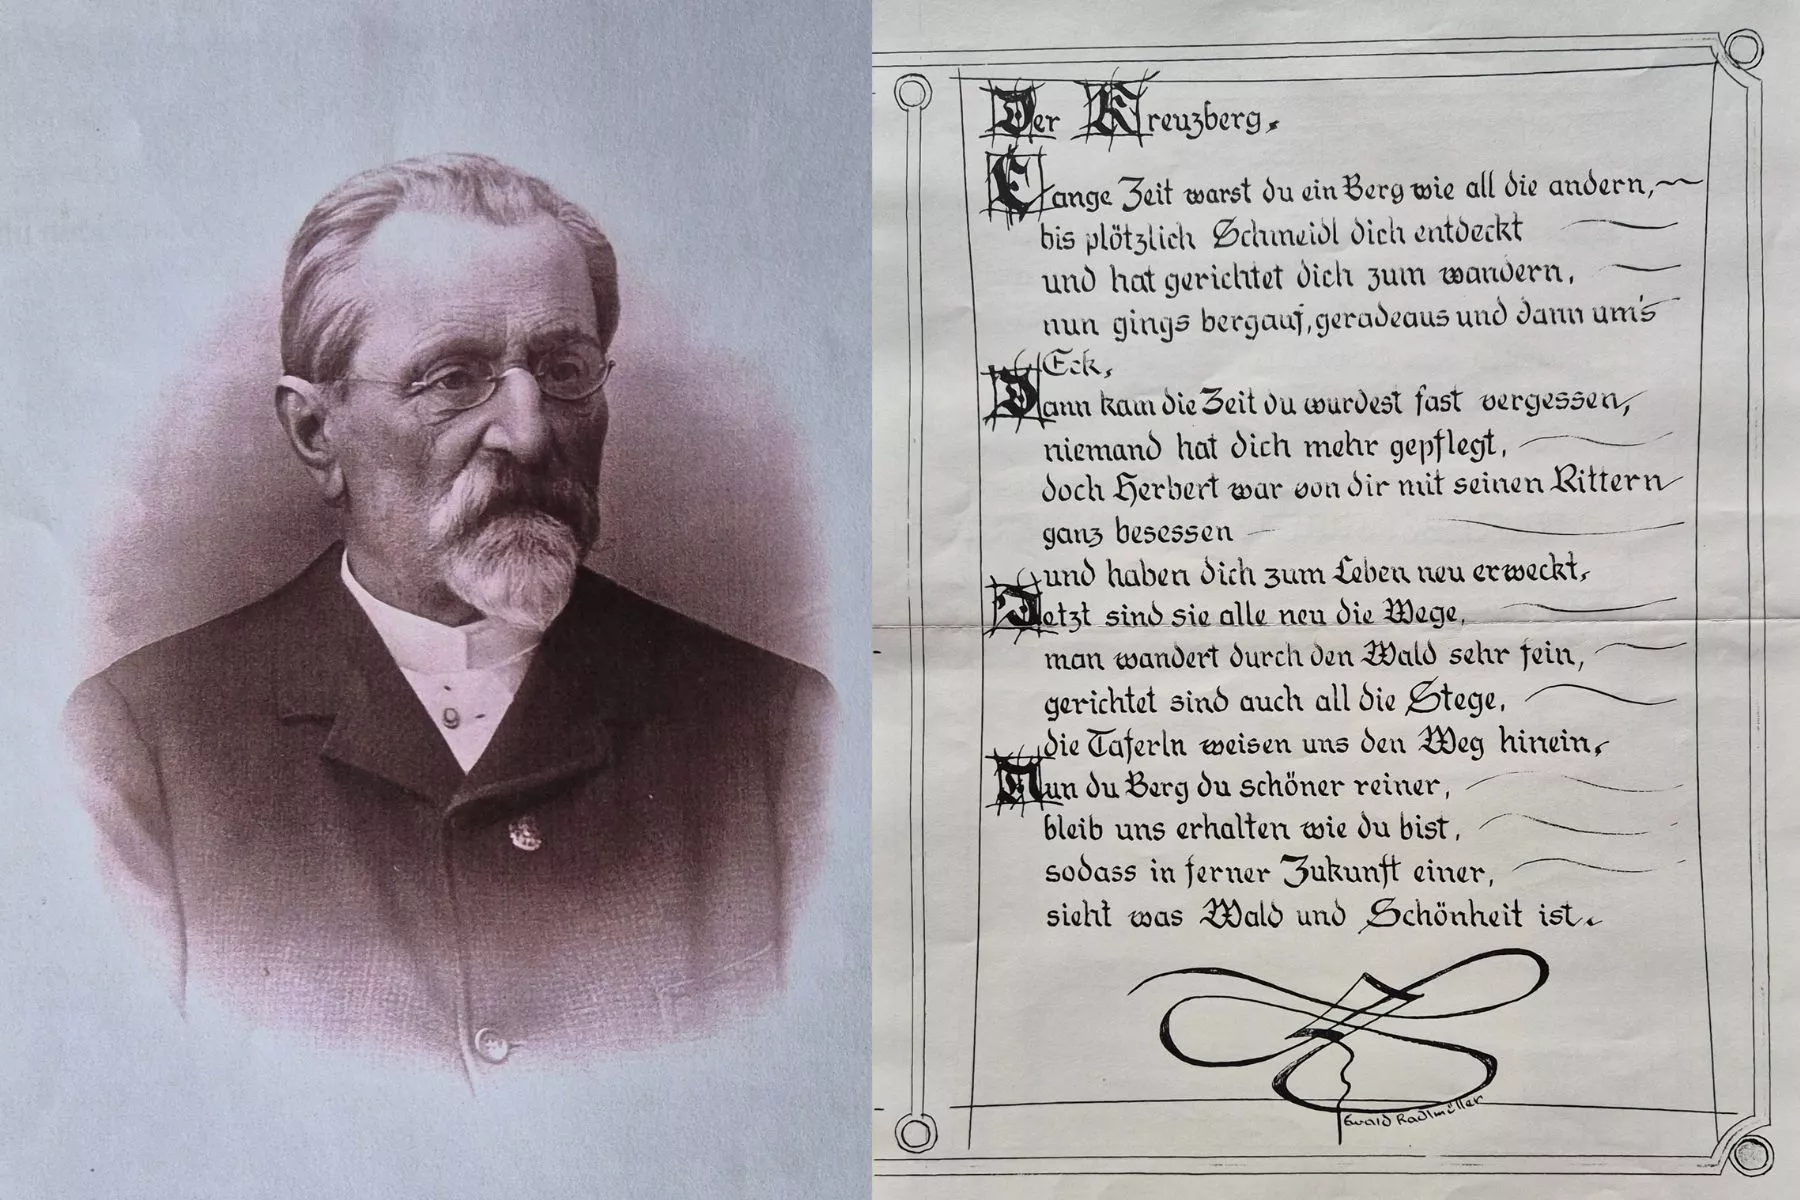 Der Kreuzberg,
Lange Zeit warst du ein Berg wie all die andern,
bis plötzlich Schmeidl dich entdeckt
und hat gerichtet dich zum wandern,
nun gings bergauf, geradeaus und dann um's
Eck,
Dann kam die Zeit du wurdest fast vergessen,
niemand hat dich mehr gepflegt,
doch Herbert war von dir mit seinen Rittern
ganz besessen
und haben dich zum Leben neu erweckt,
Jetzt sind sie alle neu die Wege,
man wandert durch den Wald sehr fein,
gerichtet sind auch all die Stege,
die Taferln weisen uns den Weg hinein,
Nun du Berg du schöner reiner,
bleib uns erhalten wie du bist,
sodass in ferner Zukunft einer,
sieht was Wald und Schönheit ist.
Ewald Radlmüller